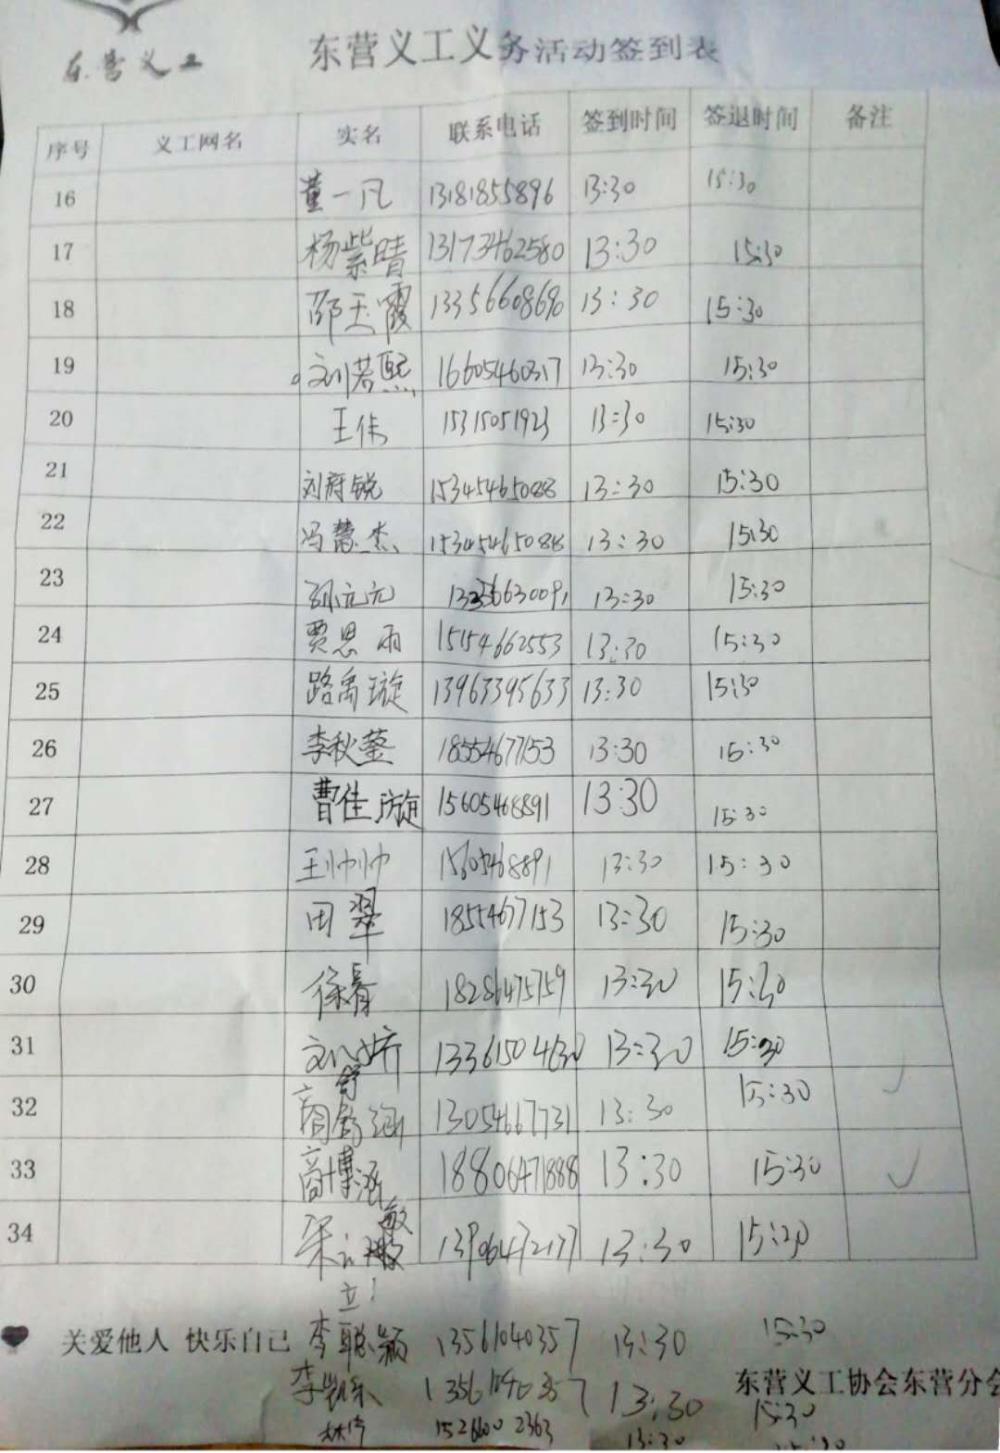 东营义工
东营义工义务活动签到表
序号 义工网名 实名 联系电话 签到时间 签退时间 备注
16 董一凡 13181855896 13:30 15:30
17 杨紫晴 13173462580 13:30 15:30
18 邵玉霞 13356608690 13:30 15:30
19 刘若熙 16605460317 13:30 15:30
20 王伟 15315051923 13:30 15:30
21 刘府锐 15345465088 13:30 15:30
22 冯慧杰 15345465088 13:30 15:30
23 孙立元 13356630091 13:30 15:30
24 贾思雨 15154662553 13:30 15:30
25 路禹璇 13963395633 13:30 15:30
26 李秋蓥 18554677153 13:30 15:30
27 曹佳璇 15605468891 13:30 15:30
28 王帅帅 15605468891 13:30 15:30
29 田翠 18554677153 13:30 15:30
30 徐春 18286475759 13:30 15:30
31 刘娇 13361504630 13:30 15:30
32 商舒涵 13054667731 13:30 15:30
33 商博涵 18806471888 13:30 15:30
34 宋立敏 13906472177 13:30 15:30
关爱他人 快乐自己 李聪颖 13561040357 13:30 15:30
李 13561040357 13:30 东营义工协会东营分会
林 15266002363 13:30 15:30